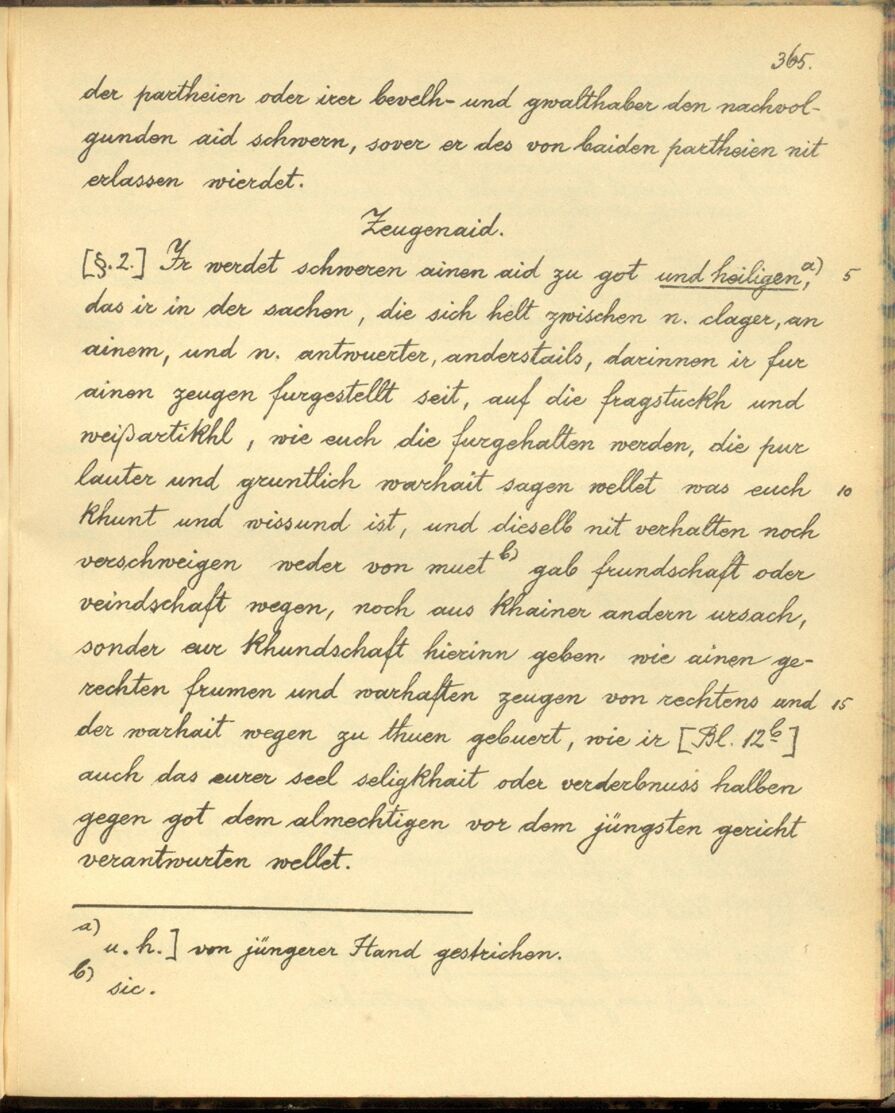 365.
der partheien oder irer bevelh- und gwalthaber den nachvol-
gunden aid schwern, sover er des von baiden partheien nit
erlassen wierdet.
Zeugenaid.
[§. 2.] Ir werdet schweren ainen aid zu got und heiligen,a) 5
das ir in der sachen, die sich helt zwischen n. clager, an
ainem, und n. antwurter, anderstails, darinnen ir fur
ainen zeugen furgestellt seit, auf die fragstuckh und
weißartikhl, wie euch die furgehalten werden, die pur
lauter und gruntlich warhait sagen wellet was euch 10
khunt und wissund ist, und dieselb nit verhalten noch
verschweigen weder von muet b) gab frundschaft oder
veindschaft wegen, noch aus khainer andern ursach,
sonder eur khundschaft hierinn geben wie ainen ge-
rechten frumen und warhaften zeugen von rechtens und 15
der warhait wegen zu thuen gebuert, wie ir [Bl. 12b]
auch das eurer seel seligkhait oder verderbnuss halben
gegen got dem almechtigen vor dem jüngsten gericht
verantwurten wellet.
a) u. h.] von jüngerer Hand gestrichen.
b) sic.